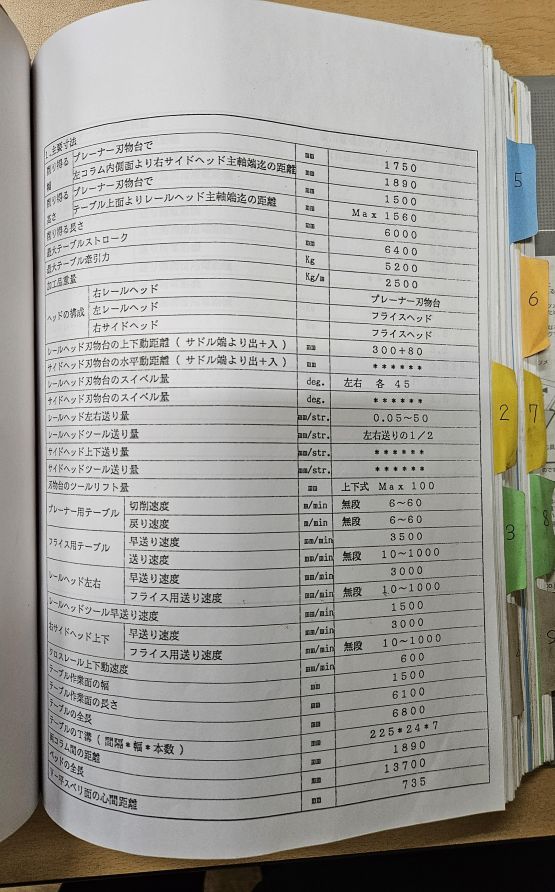 1.主要寸法
削り得る幅 プレーナー刃物台で mm 1750
左コラム内側面より右サイドヘッド主軸端迄の距離 mm 1890
削り得る高さ プレーナー刃物台で mm 1500
テーブル上面よりレールヘッド主軸端迄の距離 mm Max 1560
削り得る長さ mm 6000
最大テーブルストローク mm 6400
最大テーブル牽引力 Kg 5200
加工品重量 Kg/m 2500
ヘッドの構成 右レールヘッド プレーナー刃物台
左レールヘッド フライスヘッド
右サイドヘッド フライスヘッド
レールヘッド刃物台の上下動距離(サドル端より出+入) mm 300+80
サイドヘッド刃物台の水平動距離(サドル端より出+入) mm ******
レールヘッド刃物台のスイベル量 deg. 左右 各 45
サイドヘッド刃物台のスイベル量 deg. ******
レールヘッド左右送り量 mm/str. 0.05~50
レールヘッドツール送り量 mm/str. 左右送りの1/2
サイドヘッド上下送り量 mm/str. ******
サイドヘッドツール送り量 mm/str. ******
刃物台のツールリフト量 mm 上下式 Max 100
プレーナー用テーブル 切削速度 m/min 無段 6~60
戻り速度 m/min 無段 6~60
フライス用テーブル 早送り速度 mm/min 3500
送り速度 mm/min 無段 10~1000
レールヘッド左右 早送り速度 mm/min 3000
フライス用送り速度 mm/min 無段 10~1000
レールヘッドツール早送り速度 mm/min 1500
右サイドヘッド上下 早送り速度 mm/min 3000
フライス用送り速度 mm/min 無段 10~1000
クロスレール上下動速度 mm/min 600
テーブル作業面の幅 mm 1500
テーブル作業面の長さ mm 6100
テーブルの全長 mm 6800
テーブルのT溝(間隔*幅*本数) mm 225*24*7
両コラム間の距離 mm 1890
ベッドの全長 mm 13700
V-平スベリ面の心間距離 mm 735
5
6
2
7
3
8
9